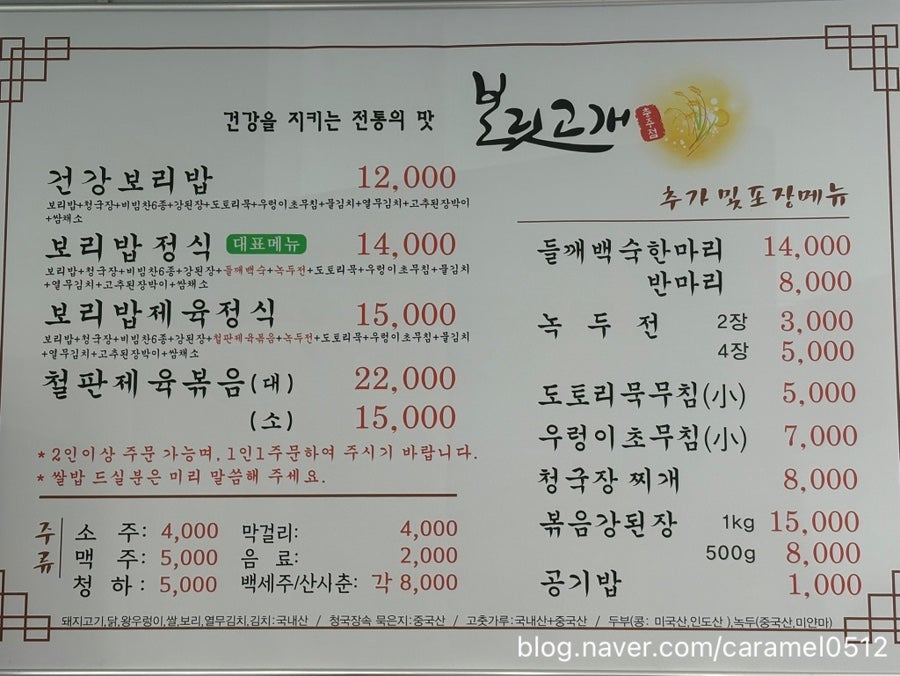 건강을 지키는 전통의 맛
보릿고개
충주점
건강보리밥 12,000
보리밥+청국장+비빔찬6종+강된장+도토리묵+우렁이초무침+물김치+열무김치+고추된장박이
+쌈채소
보리밥정식 대표메뉴 14,000
보리밥+청국장+비빔찬6종+강된장+들깨백숙+녹두전+도토리묵+우렁이초무침+물김치
+열무김치+고추된장박이+쌈채소
보리밥제육정식 15,000
보리밥+청국장+비빔찬6종+강된장+철판제육볶음+녹두전+도토리묵+우렁이초무침+물김치
+열무김치+고추된장박이+쌈채소
철판제육볶음(대) 22,000
(소) 15,000
* 2인이상 주문 가능며, 1인1주문하여 주시기 바랍니다.
* 쌀밥 드실분은 미리 말씀해 주세요.
주류
소 주: 4,000 막걸리: 4,000
맥 주: 5,000 음 료: 2,000
청 하: 5,000 백세주/산사춘: 각 8,000
추가 및 포장메뉴
들깨백숙한마리 14,000
반마리 8,000
녹 두 전 2장 3,000
4장 5,000
도토리묵무침(小) 5,000
우렁이초무침(小) 7,000
청국장찌개 8,000
볶음강된장 1kg 15,000
500g 8,000
공기밥 1,000
돼지고기,닭,왕우렁이,쌀,보리,열무김치,김치:국내산 / 청국장속 묵은지:중국산 / 고춧가루:국내산+중국산 / 두부(콩: 미국산,인도산 ),녹두(중국산,미얀마)
blog.naver.com/caramel0512